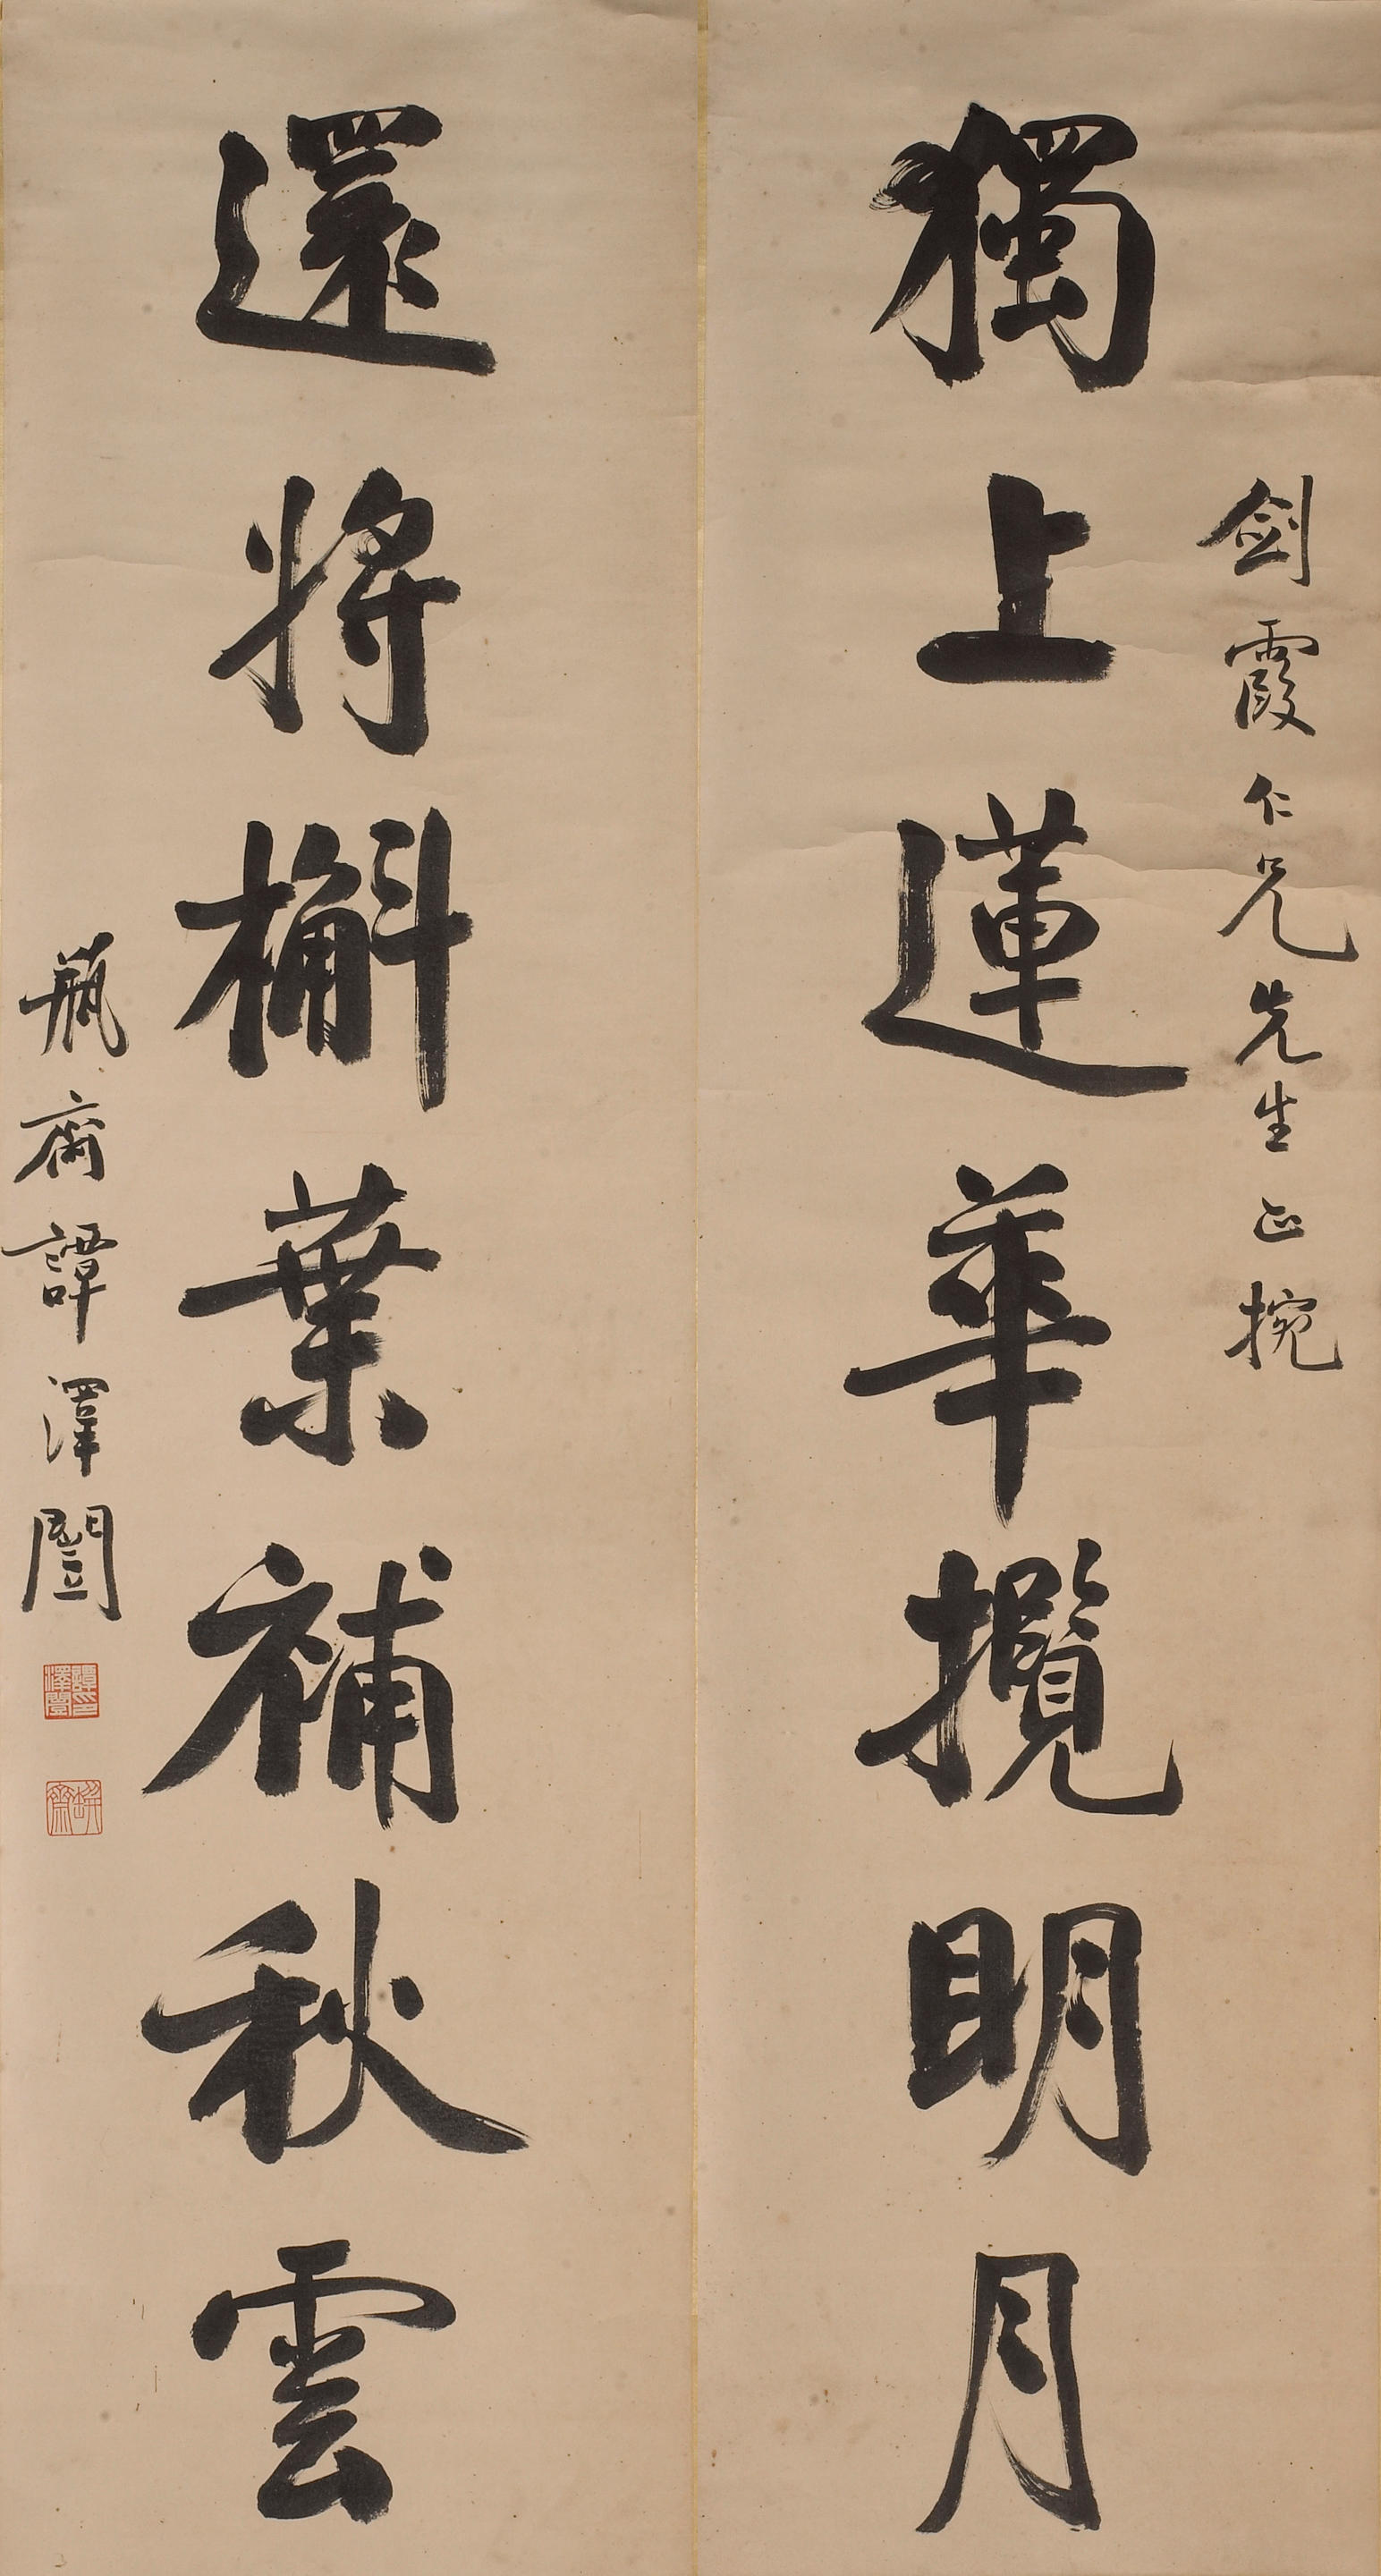 劍霞仁兄先生正捥
獨上蓮華攬明月
還將槲葉補秋雲
瓶齋譚澤闓
譚澤闓印
瓶齋